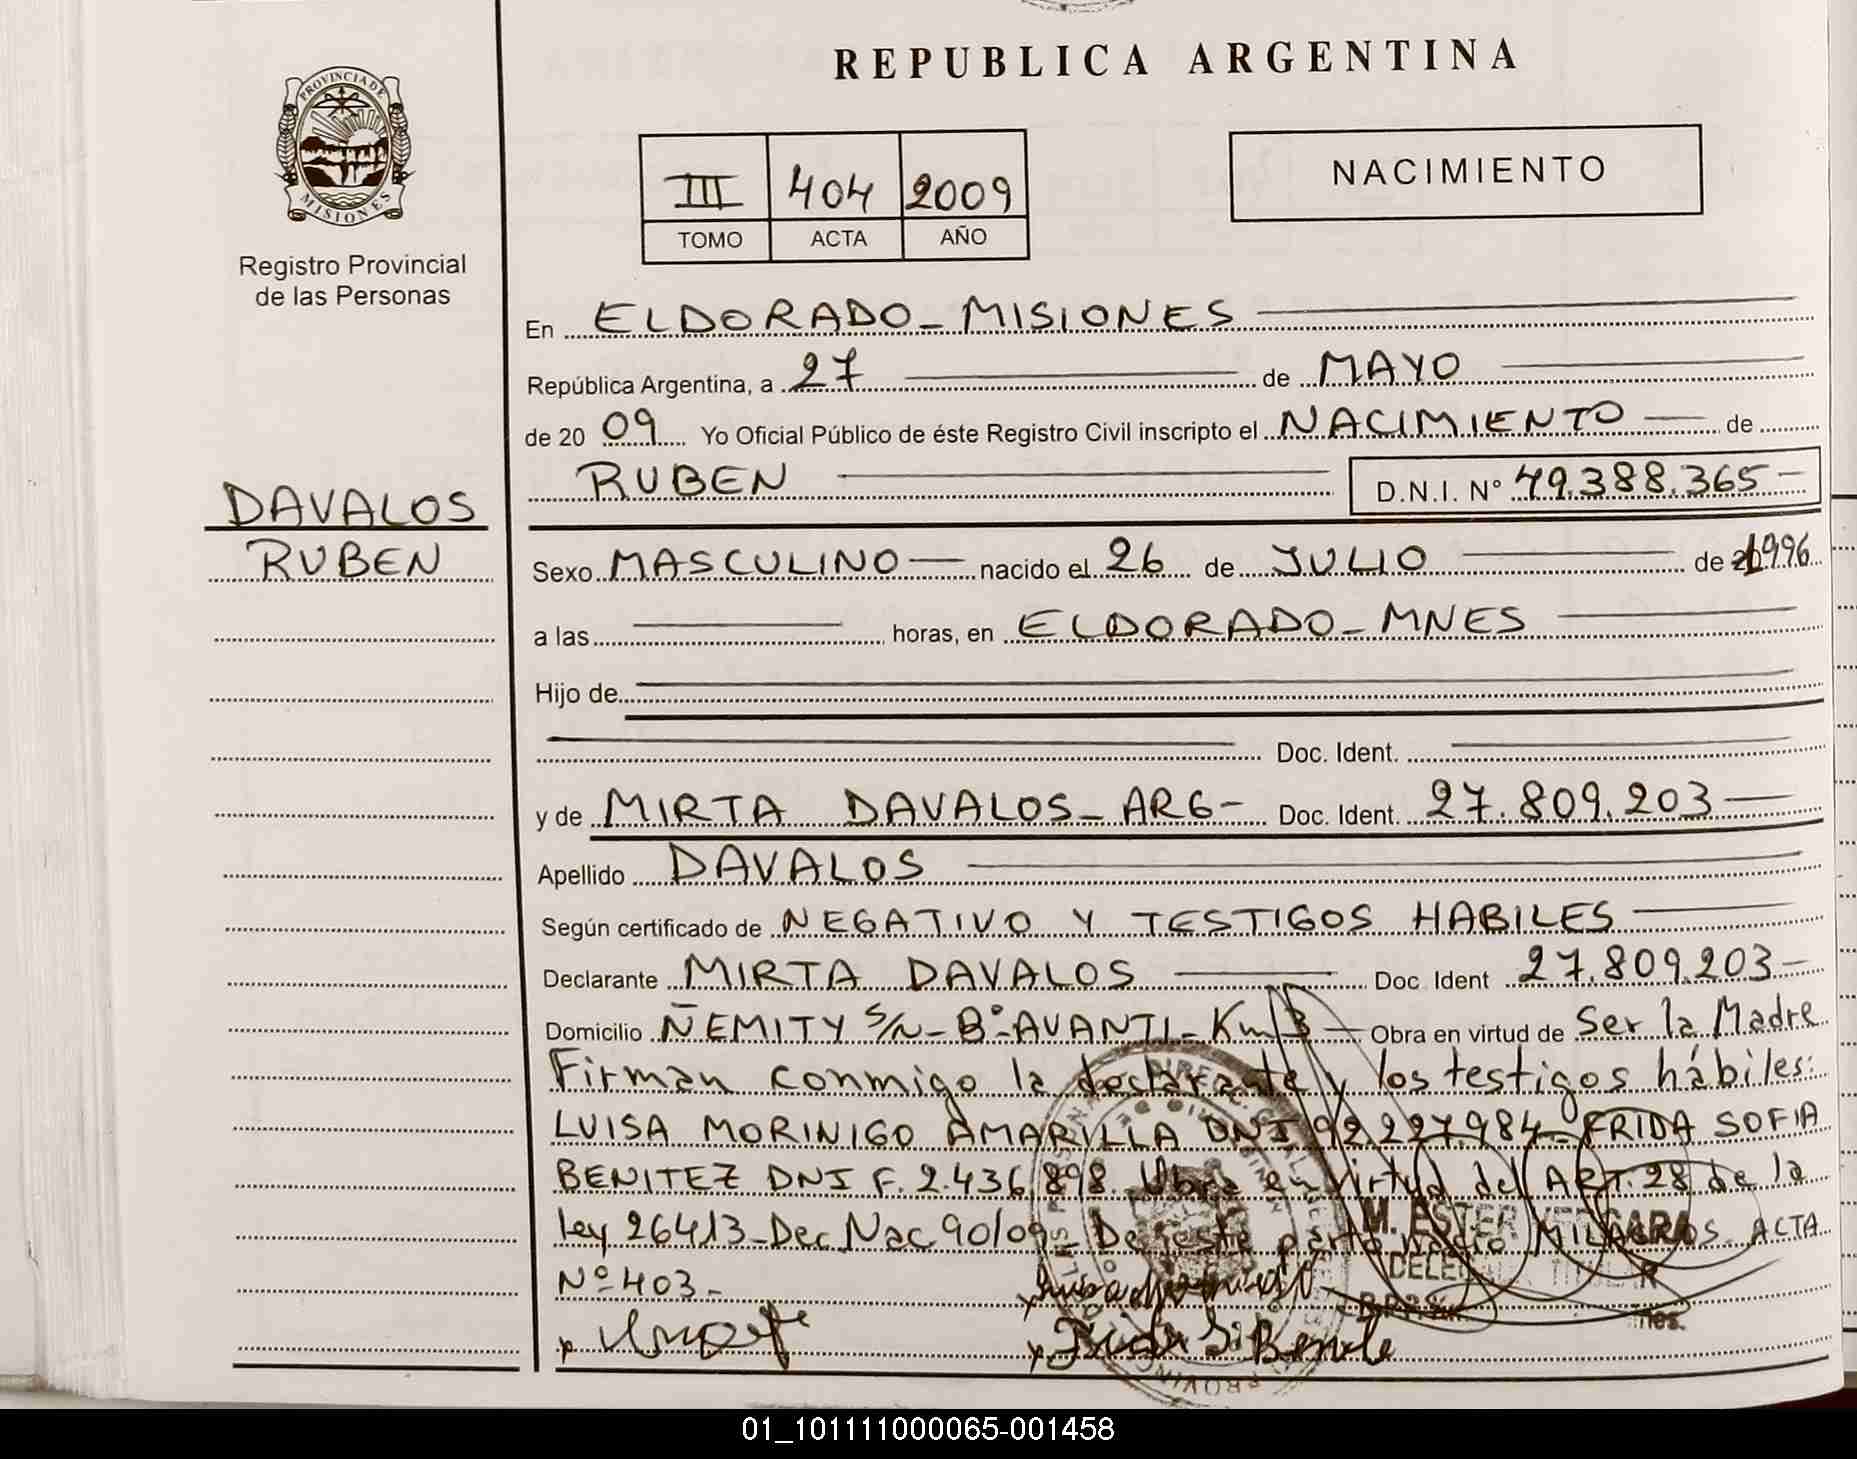 REPUBLICA ARGENTINA
PROVINCIA DE
MISIONES
Registro Provincial
de las Personas
III 404 2009
TOMO ACTA AÑO
NACIMIENTO
En ELDORADO - MISIONES
República Argentina, a 27 de MAYO
de 20 09 Yo Oficial Público de éste Registro Civil inscripto el NACIMIENTO de
RUBEN D.N.I. Nº 49.388.365
DAVALOS
RUBEN
Sexo MASCULINO nacido el 26 de JULIO de 1996
a las horas, en ELDORADO - MNES
Hijo de
Doc. Ident.
y de MIRTA DAVALOS - ARG - Doc. Ident. 27.809.203
Apellido DAVALOS
Según certificado de NEGATIVO Y TESTIGOS HABILES
Declarante MIRTA DAVALOS Doc. Ident 27.809.203
Domicilio ÑEMITY S/N - Bº AVANTI - Km 3 Obra en virtud de Ser la Madre
Firman conmigo la declarante y los testigos hábiles:
LUISA MORINIGO AMARILLA DNI 92.227.984 - FRIDA SOFIA
BENITEZ DNI F. 2.436.898. en virtud del ART. 28 de la
Ley 26413 - Dec Nac 90/09 - De este parto nació MILAGROS ACTA
Nº 403 -
M. ESTER VERGARA
01_101111000065-001458